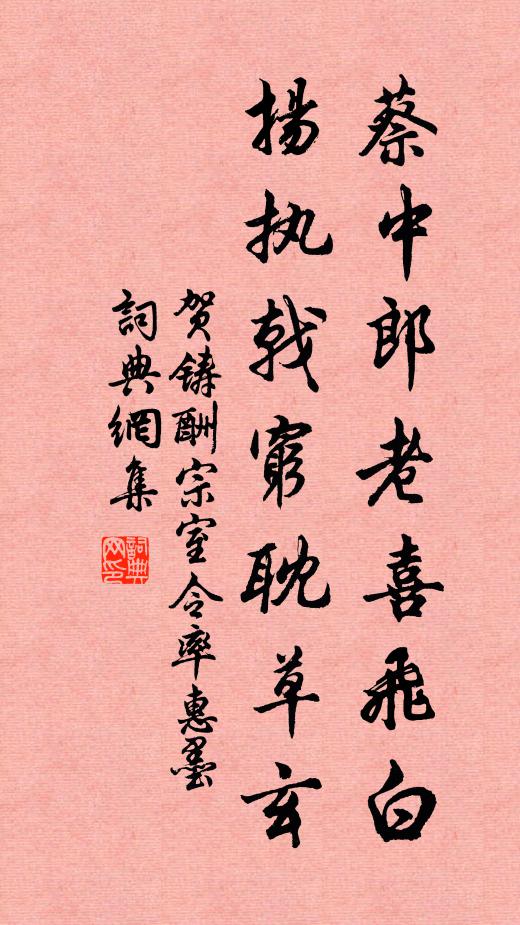 蔡中郎老喜飛白
揚执戟窮耽草玄
贺铸酬宗室令率惠墨
詞典網集
詞典网印